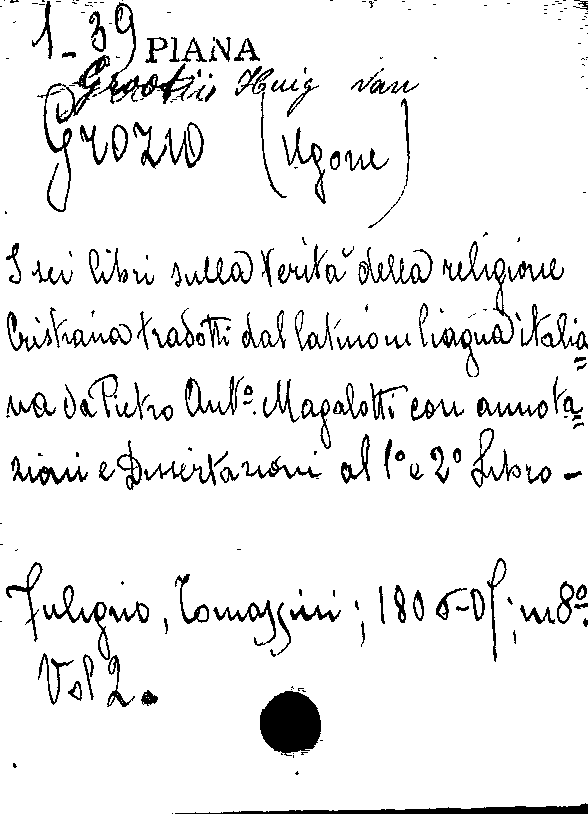 1-39 PIANA
Grootii Huig van
Grozio (Ugone)
I sei libri sulla Verità della religione
Cristiana tradotti dal latino in liagua italia=
na da Pietro Antº. Magalotti con annota=
zioni e Dissertazioni al 1º e 2º Libro -
Fuligno, Tomassini; in 8º.
Vol 2.